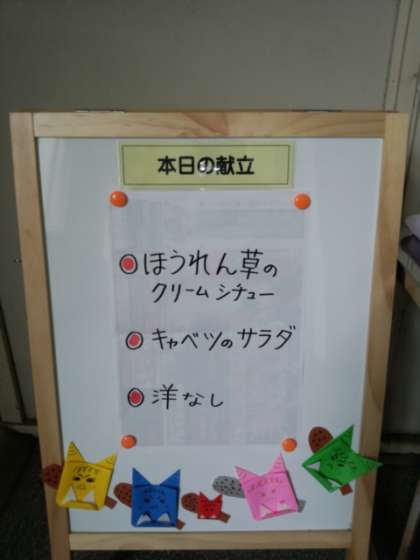 本日の献立
ほうれん草の
クリームシチュー
キャベツのサラダ
洋なし